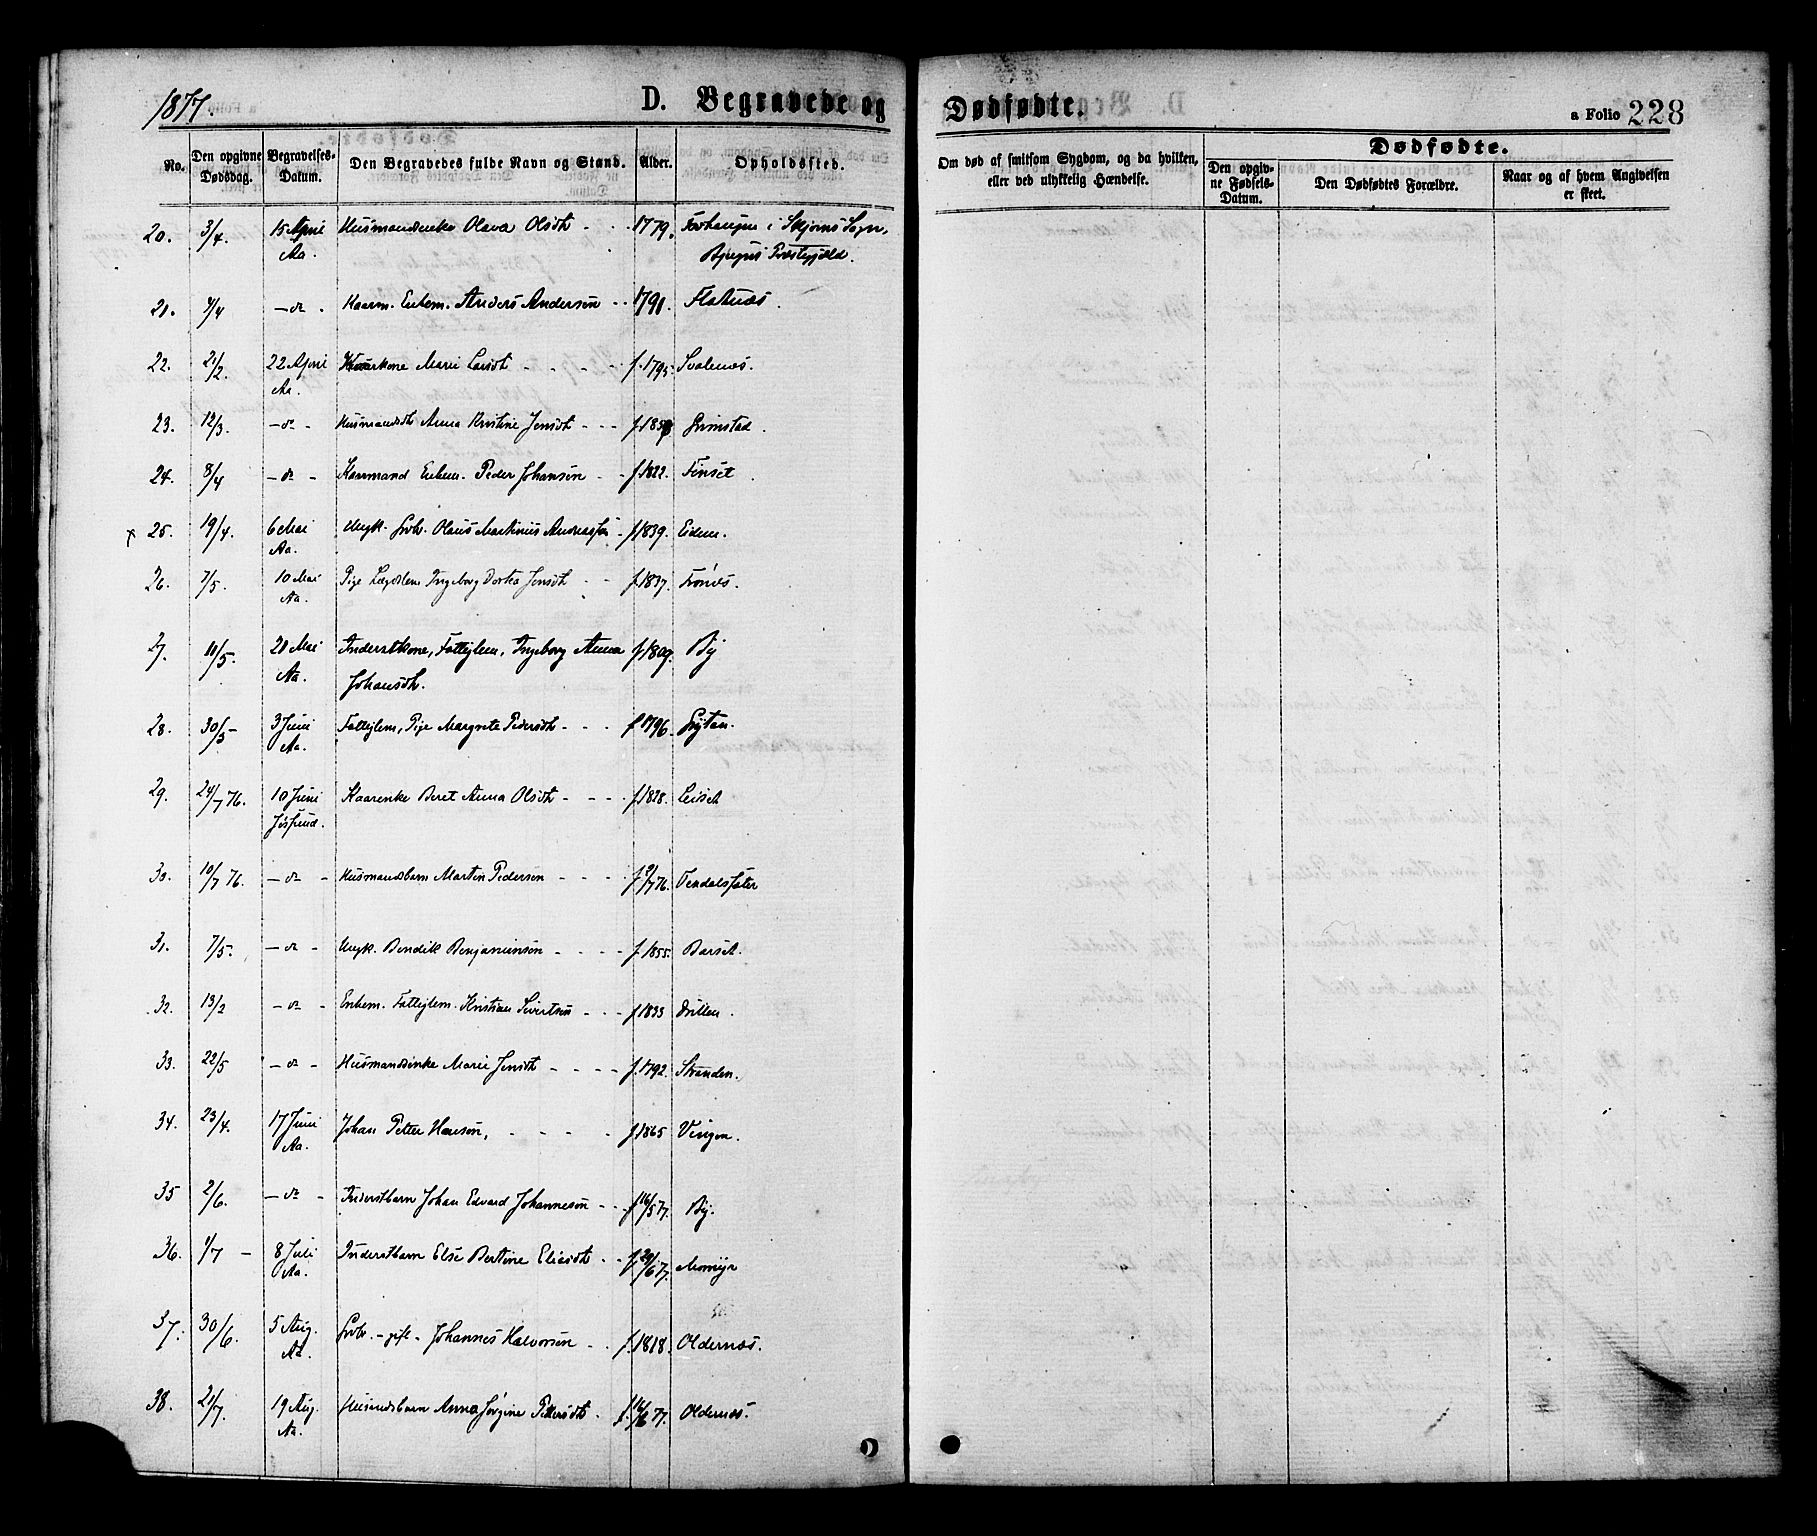 1877.
D. Begravede og Dødfødte.
a Folio 228
No. Den opgivne Dødsdag. Begravelses-Datum. Den Begravedes fulde Navn og Stand. Alder. Opholdssted.
Om død af smitsom Sygdom, og da hvilken, eller ved ulykkelig Hændelse.
Dødfødte.
Den opgivne Fødsels-Datum. Den Dødfødtes Forældre. Naar og af hvem Angivelsen er skeet.
20. 3/4. 15 April Husmandsenke Olava Olsdt - - 1779. i Skjørns Sogn,
Aa. Præstegjæld.
21. 4/4 -do- Kaarm. Enkem. Anders Andersen - - 1791. Flatnæs.
22. 21/2. 22 April Kaarkone Marie Larsdt - - - - f. 1795. Svalenæs.
Aa.
23. 12/3. -do- Husmandsdt Anna Kristine Jensdt - - - Grimstad.
24. 8/4 -do- Kaarmand Enkem. Peder Johansen - f. 1822. Finset.
x 25. 19/4. 6 Mai Ungk. Gvbr. Olaus Martinus f. 1839. Eidem.
Aa.
26. 7/5. 10 Mai Pige Lægdslem Ingeborg Dortea Jensdt - - f. 1837.
Aa.
27. 10/5. 20 Mai Inderstkone, Fattiglem, Ingeborg Anna f. 1809. By
Aa. Johansdt.
28. 30/5- 3 Juni Fattiglem, Pige Margrete Pedersdt - - - f 1796. Grytan.
Aa.
29. 24/7 76. 10 Juni Kaarenke Beret Anna Olsdt - - - f. 1828. Leiset
Jøssund.
30. 10/7 76. -do- Husmandsbarn Martin Pedersen - - - - f. 9/7 76.
31. 7/5. -do- Ungk. Bendik Benjaminsen - - - - f. 1855. Barset.
32. 13/2 -do- Enkem. Fattiglem. Kristian Sivertsen - - - f 1833
33. 22/5 -do- Husmandsenke Marie Jensdt - - - - f. 1792. Stranden.
34. 23/4. 17 Juni Johan Petter Hansen, - - - - f. 1865 Vingen.
Aa.
35 2/6. -do- Inderstbarn Johan Edvard Johannesen - - f 16/5 77. By.
36. 1/7 - 8 Juli Inderstbarn Else Bertine Eliasdt - - f. 20/6 77. Momyr
Aa.
37. 30/6. 5 Aug. Gvbr. - gift - Johannes Halvorsen - - f. 1818. Oldernæs.
Aa.
38. 21/7. 19 Aug. Husmdsbarn Anna Jørgine Pettersdt - f. 16/6 77. Oldernæs.
Aa.